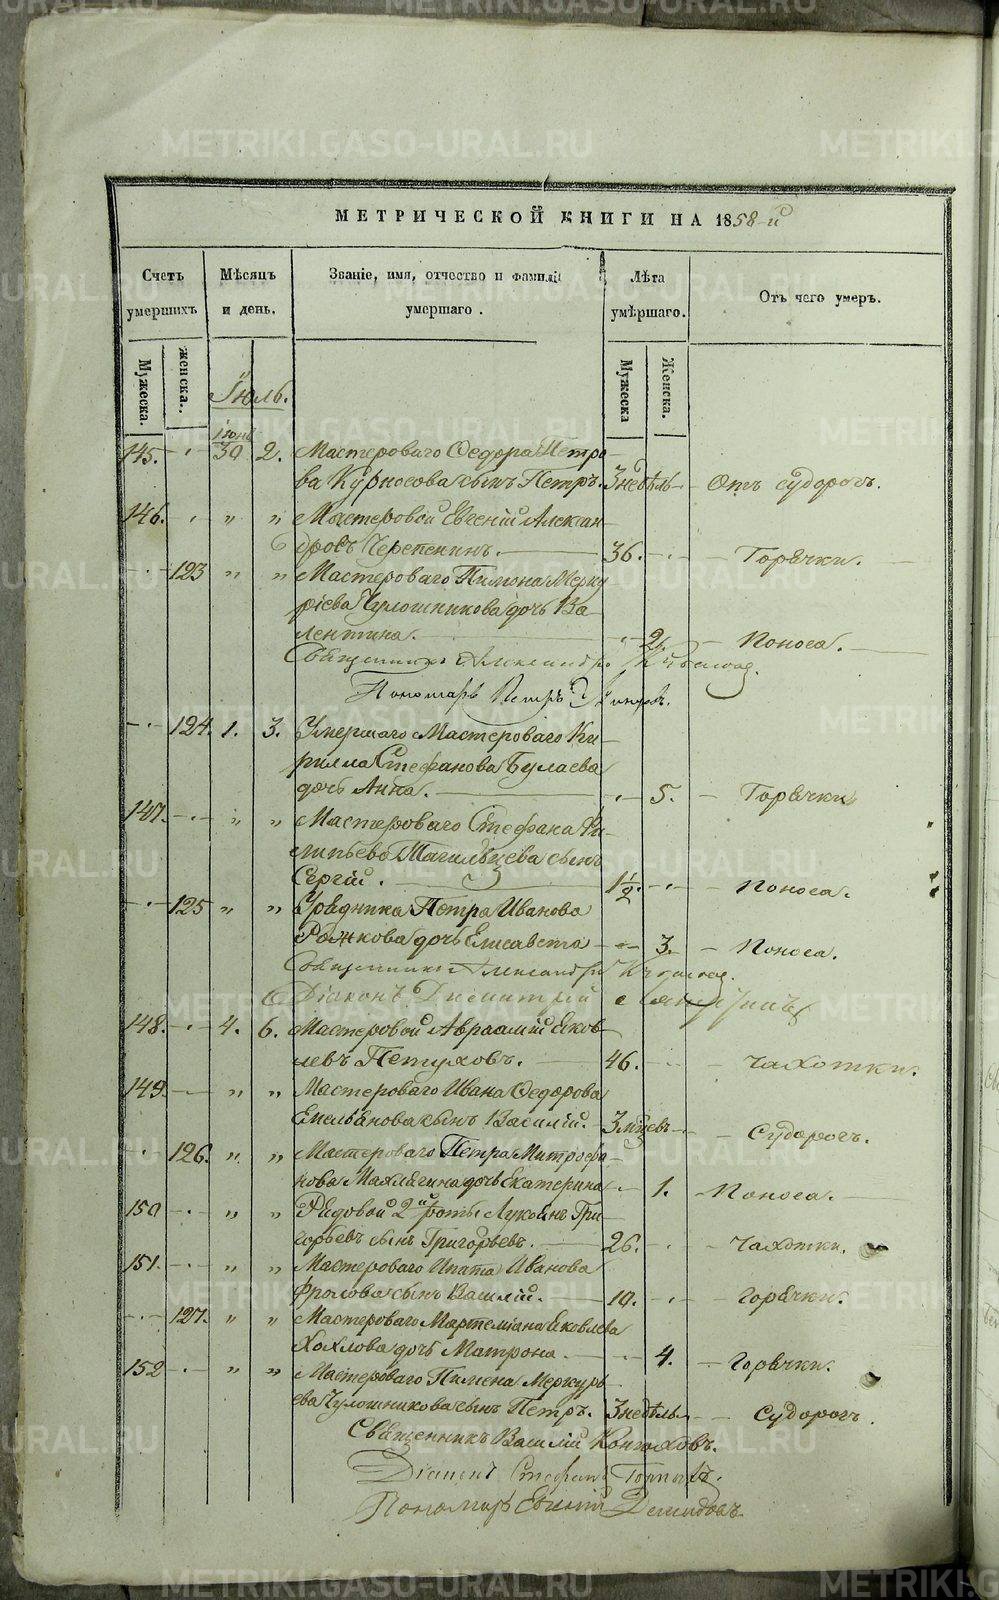 METRIKI.GASO-URAL.RU
МЕТРИЧЕСКОЙ КНИГИ НА 1858-й
Счетъ умершихъ
Мѣсяцъ и день.
Званіе, имя, отчество и фамилія умершаго.
Лѣта умершаго.
Отъ чего умеръ.
Мужеска. женска. Мужеска Женска.
Іюль.
Іюнь
145. 30 2. Мастероваго Ѳедора Петро-
ва Курносова сынъ Петръ. 3 недѣль Отъ судорогъ.
146. " " Мастеровой Евгеній Алексан-
дровъ Черепенинъ. 36. Горячки.
123 " " Мастероваго Пимона Мерку
ріева Чулошникова дочь Ва-
лентина. 2. Поноса.
Священникъ Александръ
Пономарь Петръ
124. 1. 3. Умершаго Мастероваго Ки-
рилла Стефанова Булаева
дочь Анна. 5. Горячки
147. " " Мастероваго Стефана Фи-
липьево сынъ
Сергій. 1½. Поноса.
125 " " Урядника Петра Иванова
Рожкова дочь Елисавета 3. Поноса.
Священникъ Александръ
Діаконъ Димитрій
148. 4. 6. Мастеровой Авраамій Яков-
левъ Петуховъ. 46. Чахотки.
149. " " Мастероваго Ивана Ѳедорова
Емельянова сынъ Василій. 3 мцевъ Судорогъ.
126. " " Мастероваго Петра Митрофа-
нова дочь Екатерина 1. Поноса.
150 " " Рядовой 2й роты Лукоянъ Гри-
горьевъ сынъ Григорьевъ. 26. Чахотки.
151. " " Мастероваго Ипата Иванова
Фролова сынъ Василій. 10. Горячки.
127. " " Мастероваго Мартеміана Яковлева
Хохлова дочь Матрона. 4. Горячки.
152 " " Мастероваго Пимена Меркурь-
ева Чулошникова сынъ Петръ. 3 недѣль Судорогъ.
Священникъ Василій Конюховъ.
Діаконъ Стефанъ
Пономарь Евгеній Демидовъ